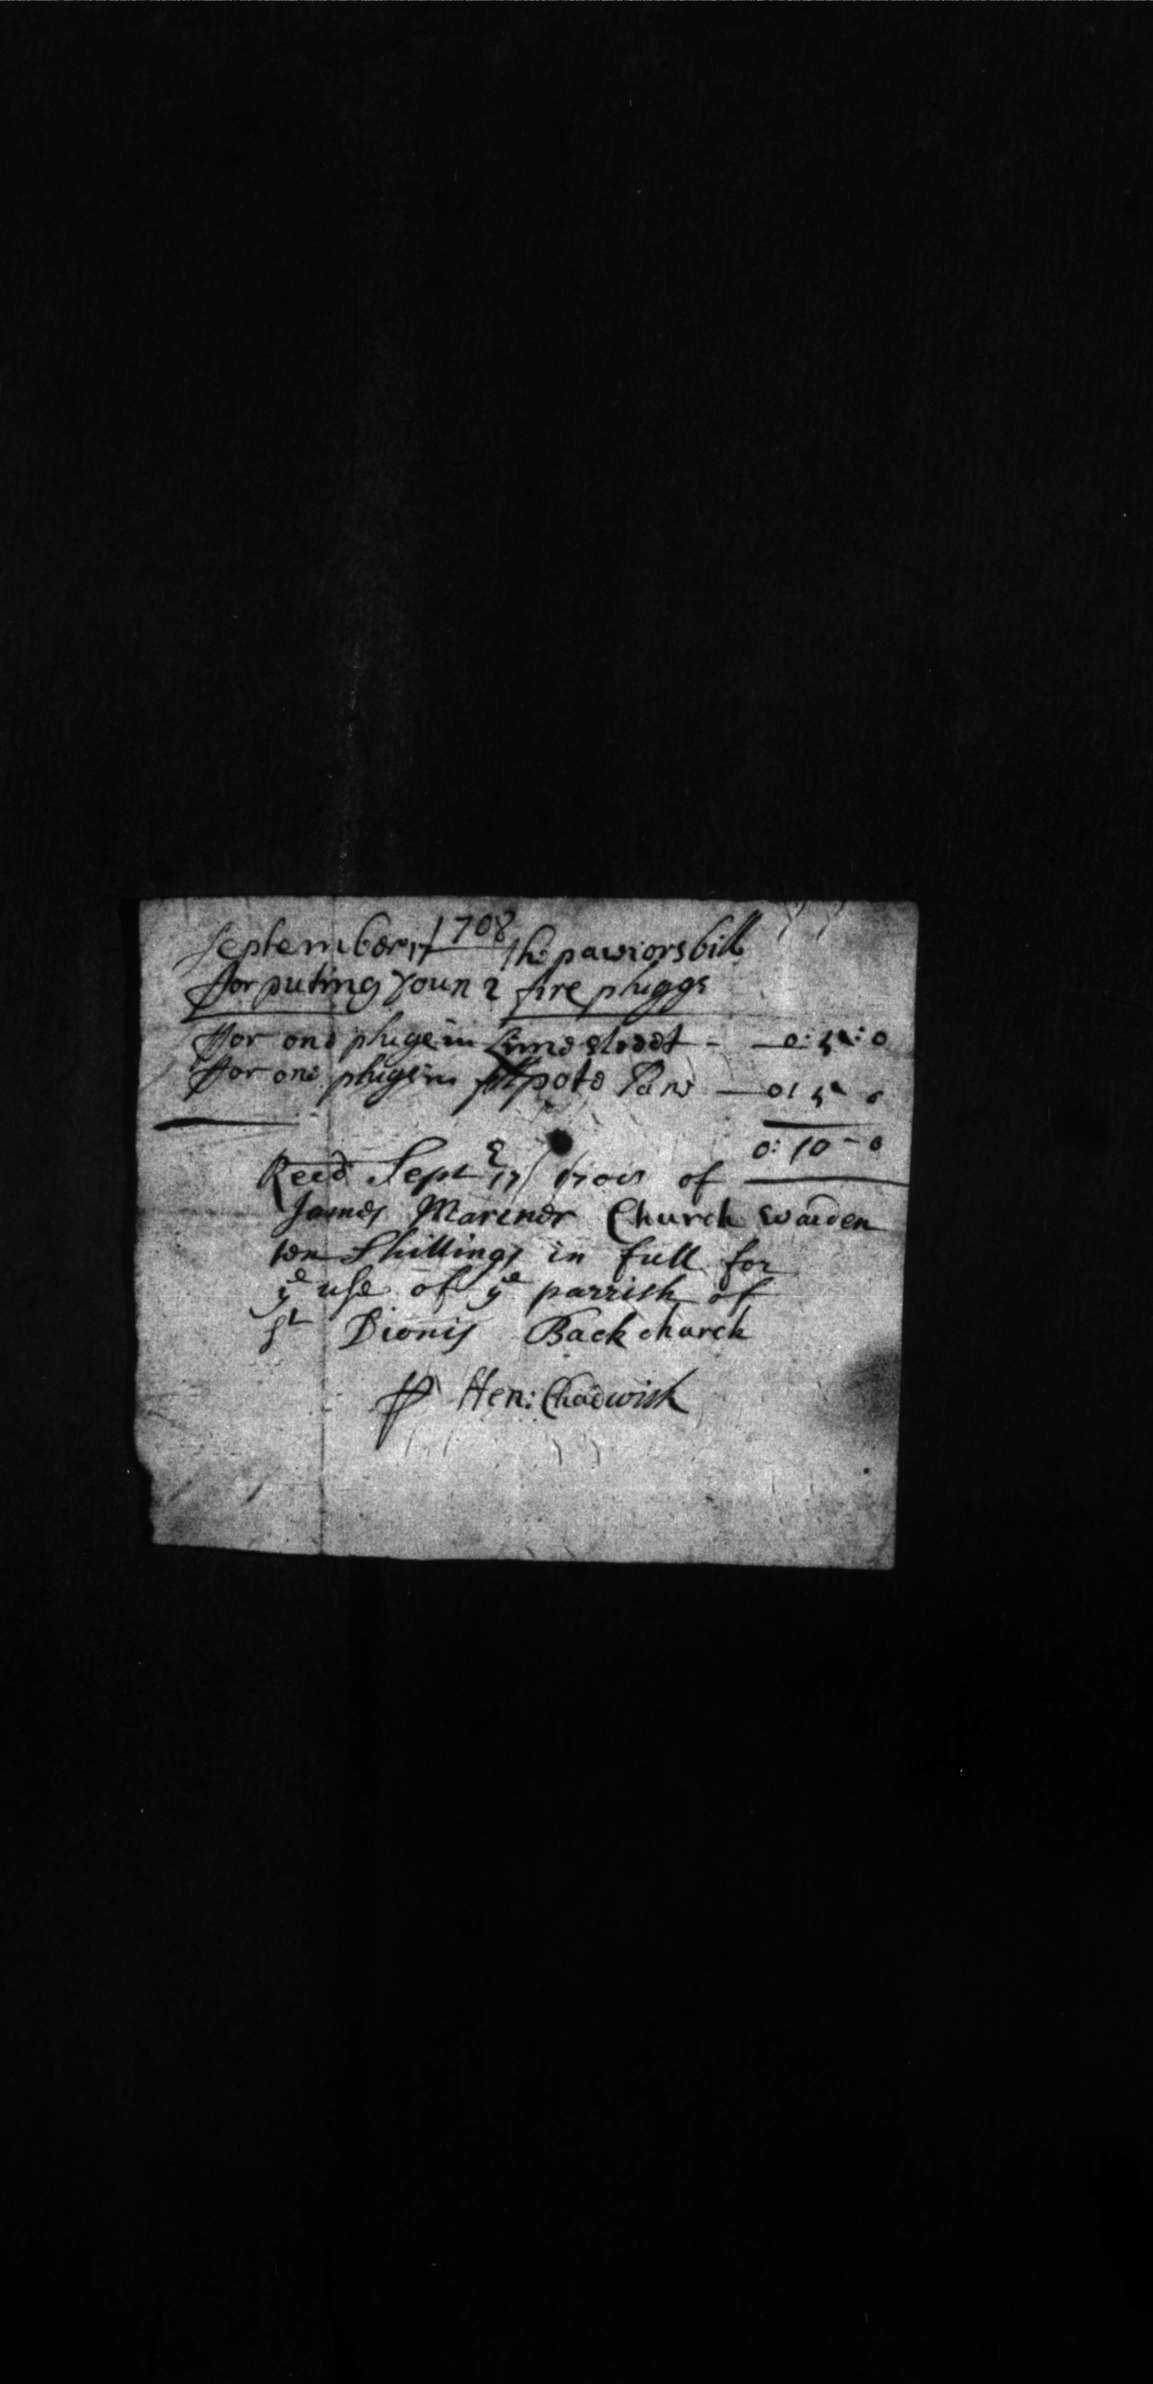 September 17 1708 the paviors bill
for puting Doun 2 fire pluggs
for one pluge in Lime street - 0:5:0
for one pluge in fillpote Lane 0:5:0
0:10-0
Recd Septr 17 1708 of
James Mariner Church Warden
ten Shillings in full for
ye use of ye parrish of
St Dionis Backchurch
P Hen: Chadwick